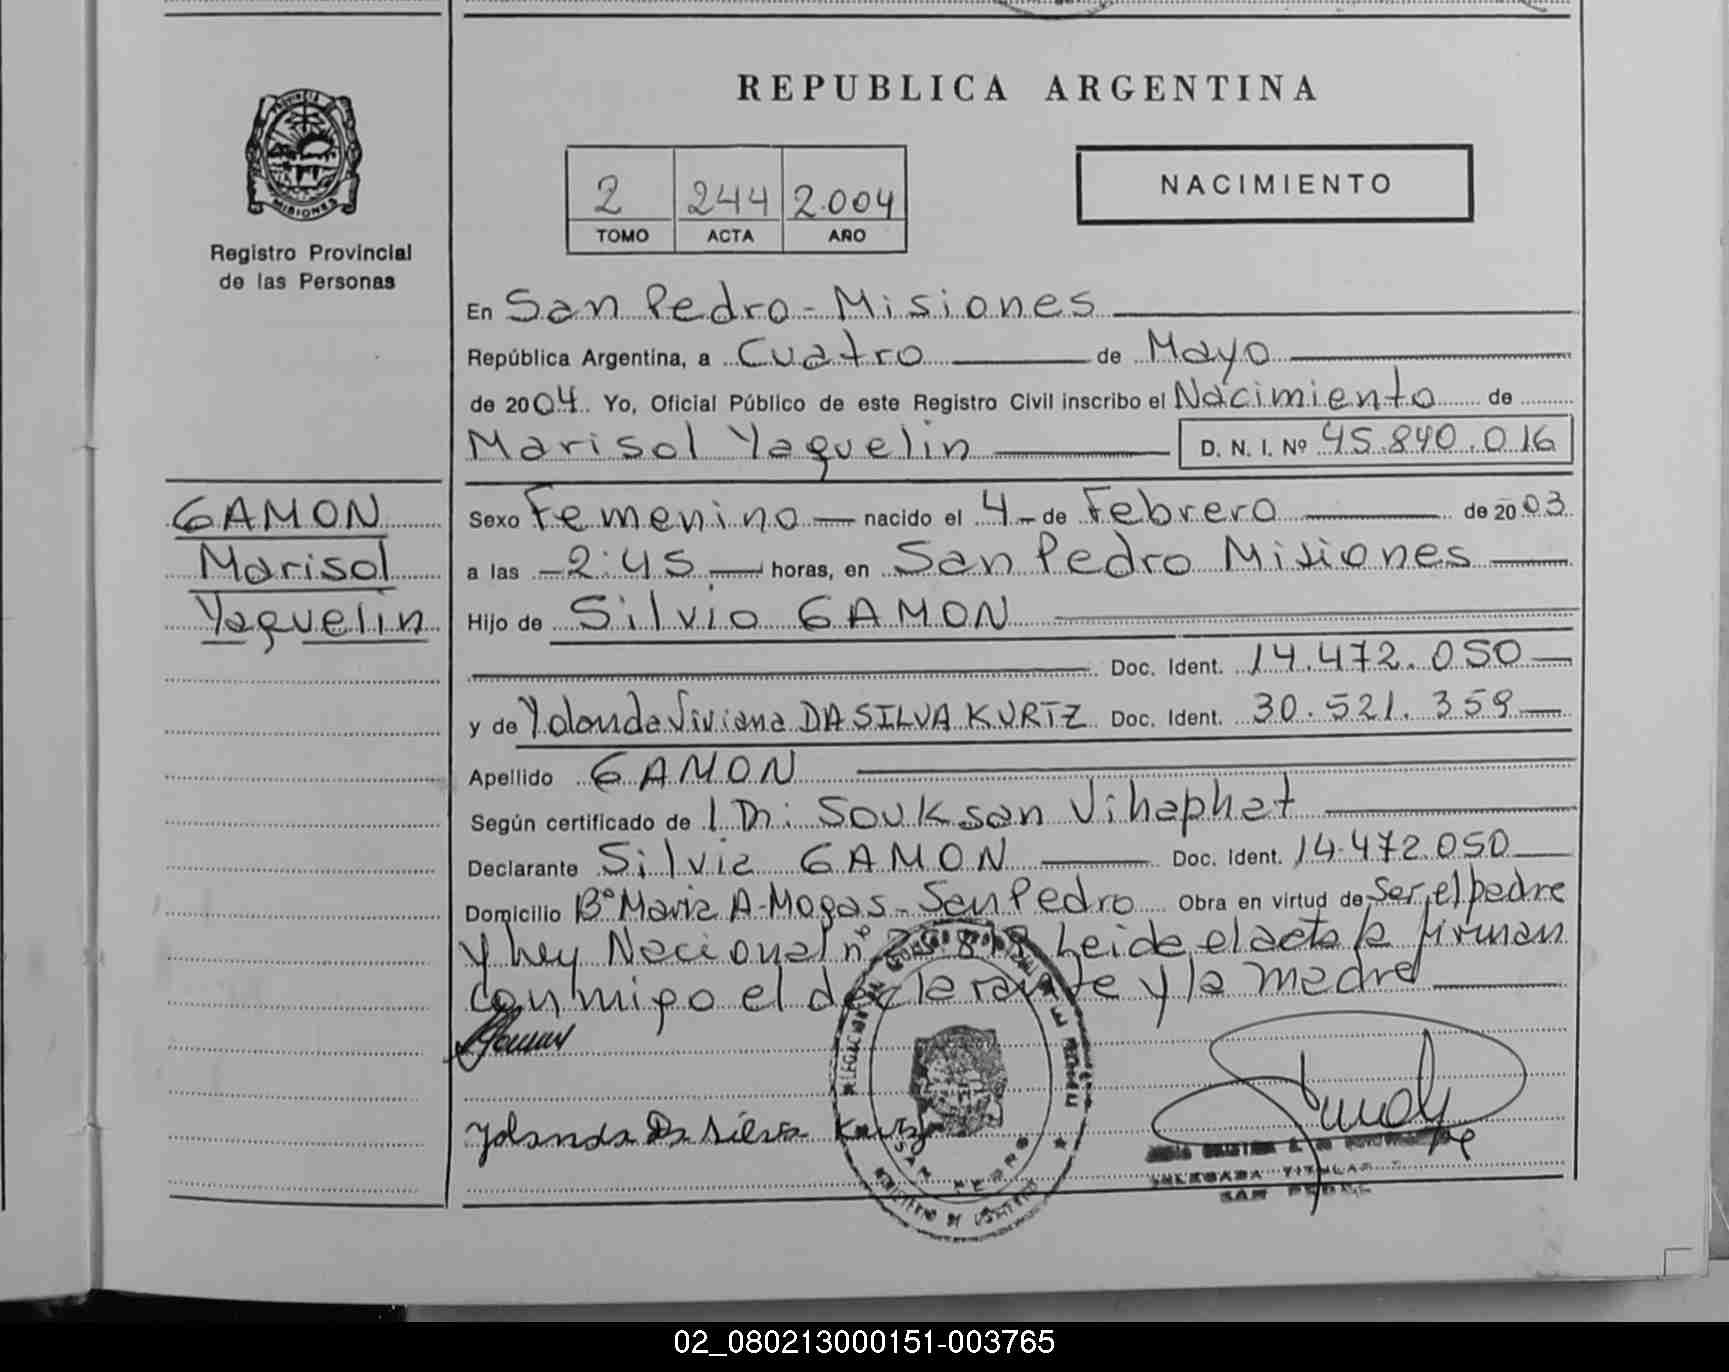 REPUBLICA ARGENTINA
PROVINCIA DE
MISIONES
Registro Provincial
de las Personas
2 244 2.004
TOMO ACTA AÑO
NACIMIENTO
En San Pedro - Misiones
República Argentina, a Cuatro de Mayo
de 2004. Yo, Oficial Público de este Registro Civil inscribo el Nacimiento de
Marisol Yaquelin D. N. I. Nº 45.840.016
GAMON
Marisol
Yaquelin
Sexo Femenino nacido el 4 de Febrero de 2003
a las 2:45 horas, en San Pedro Misiones
Hijo de Silvio GAMON
Doc. Ident. 14.472.050
y de Yolanda Viviana DA SILVA KURTZ Doc. Ident. 30.521.359
Apellido GAMON
Según certificado de Souksan Vihaphat
Declarante Silvio GAMON Doc. Ident. 14.472.050
Domicilio Bº Maria A. Mogas - San Pedro Obra en virtud de Ser el padre
y ley Nacional nº Leida el acta la firman
conmigo el declarante y la madre
Yolanda Da Silva Kurtz
SAN PEDRO
DELEGADA TITULAR
SAN PEDRO
02_080213000151-003765